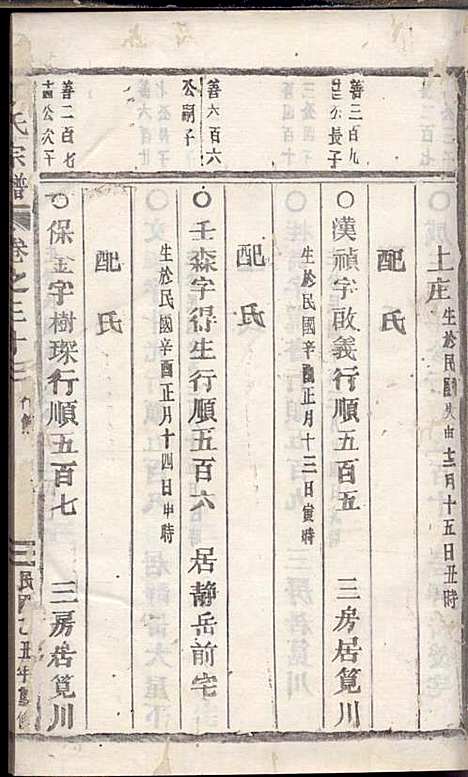 上庄 生於民國 十二月十五日丑時
配氏
善三百九
公長子
○漢禎字啟義行順五百五 三房居筧川
生於民國辛酉正月十三日寅時
配氏
善六百六
公嗣子
○壬森字得生行順五百六 居靜岳前宅
生於民國辛酉正月十四日申時
配氏
善二百七
公次子
○保金字樹琛行順五百七 三房居筧川
氏宗譜 卷之三十三 三 民國乙丑年